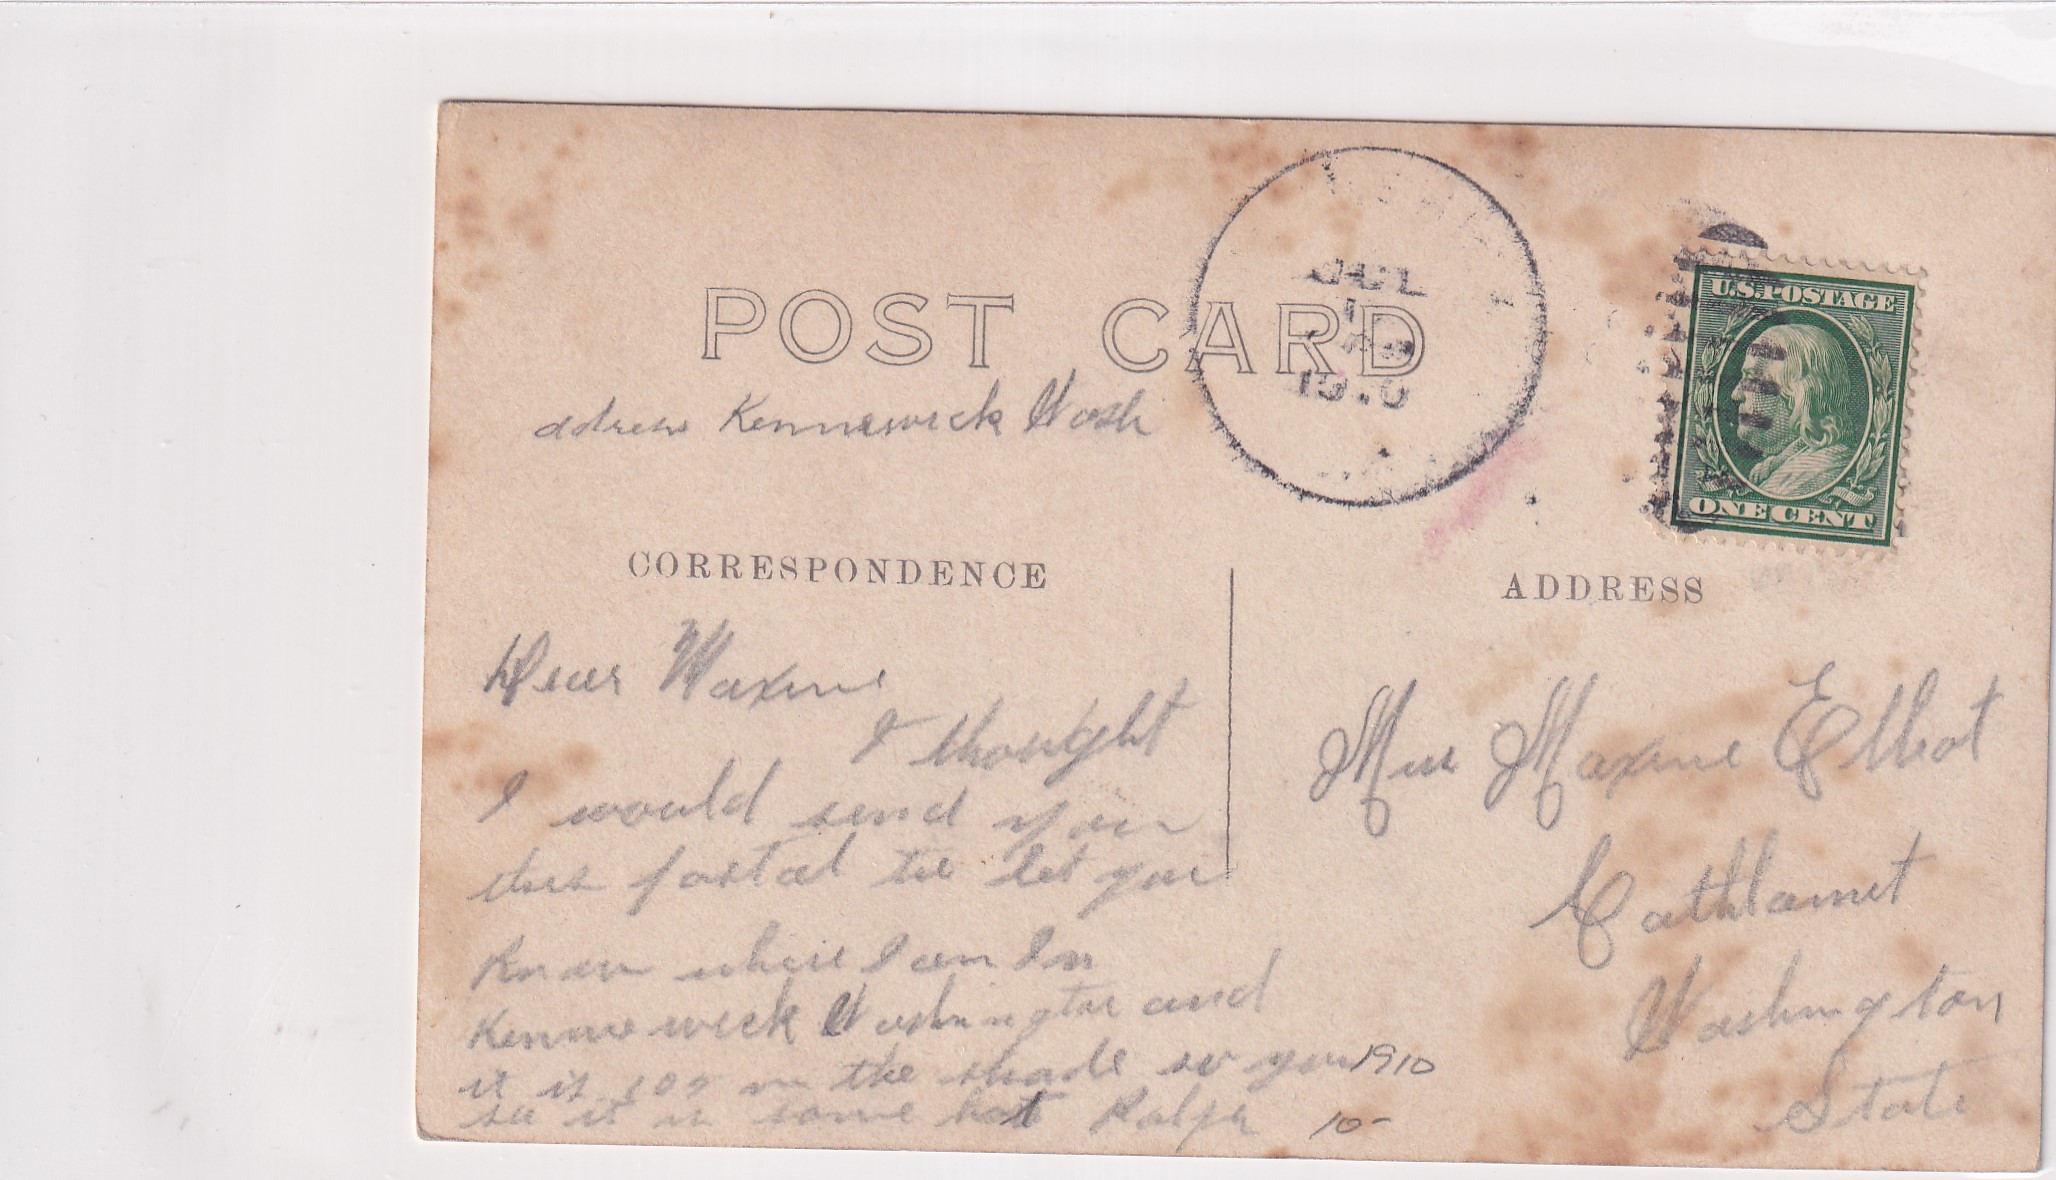 POST CARD
JUL
U.S. POSTAGE
ONE CENT
address Kennewick Wash
CORRESPONDENCE
ADDRESS
Dear Maxine
I thought
I would send you
this postal to let you
Know where I am In
Kennewick Washington and
it is 100 in the shade so you
see it is some hot Ralph
Miss Maxine Elliot
Cathlamet
Washington
State
1910
10-